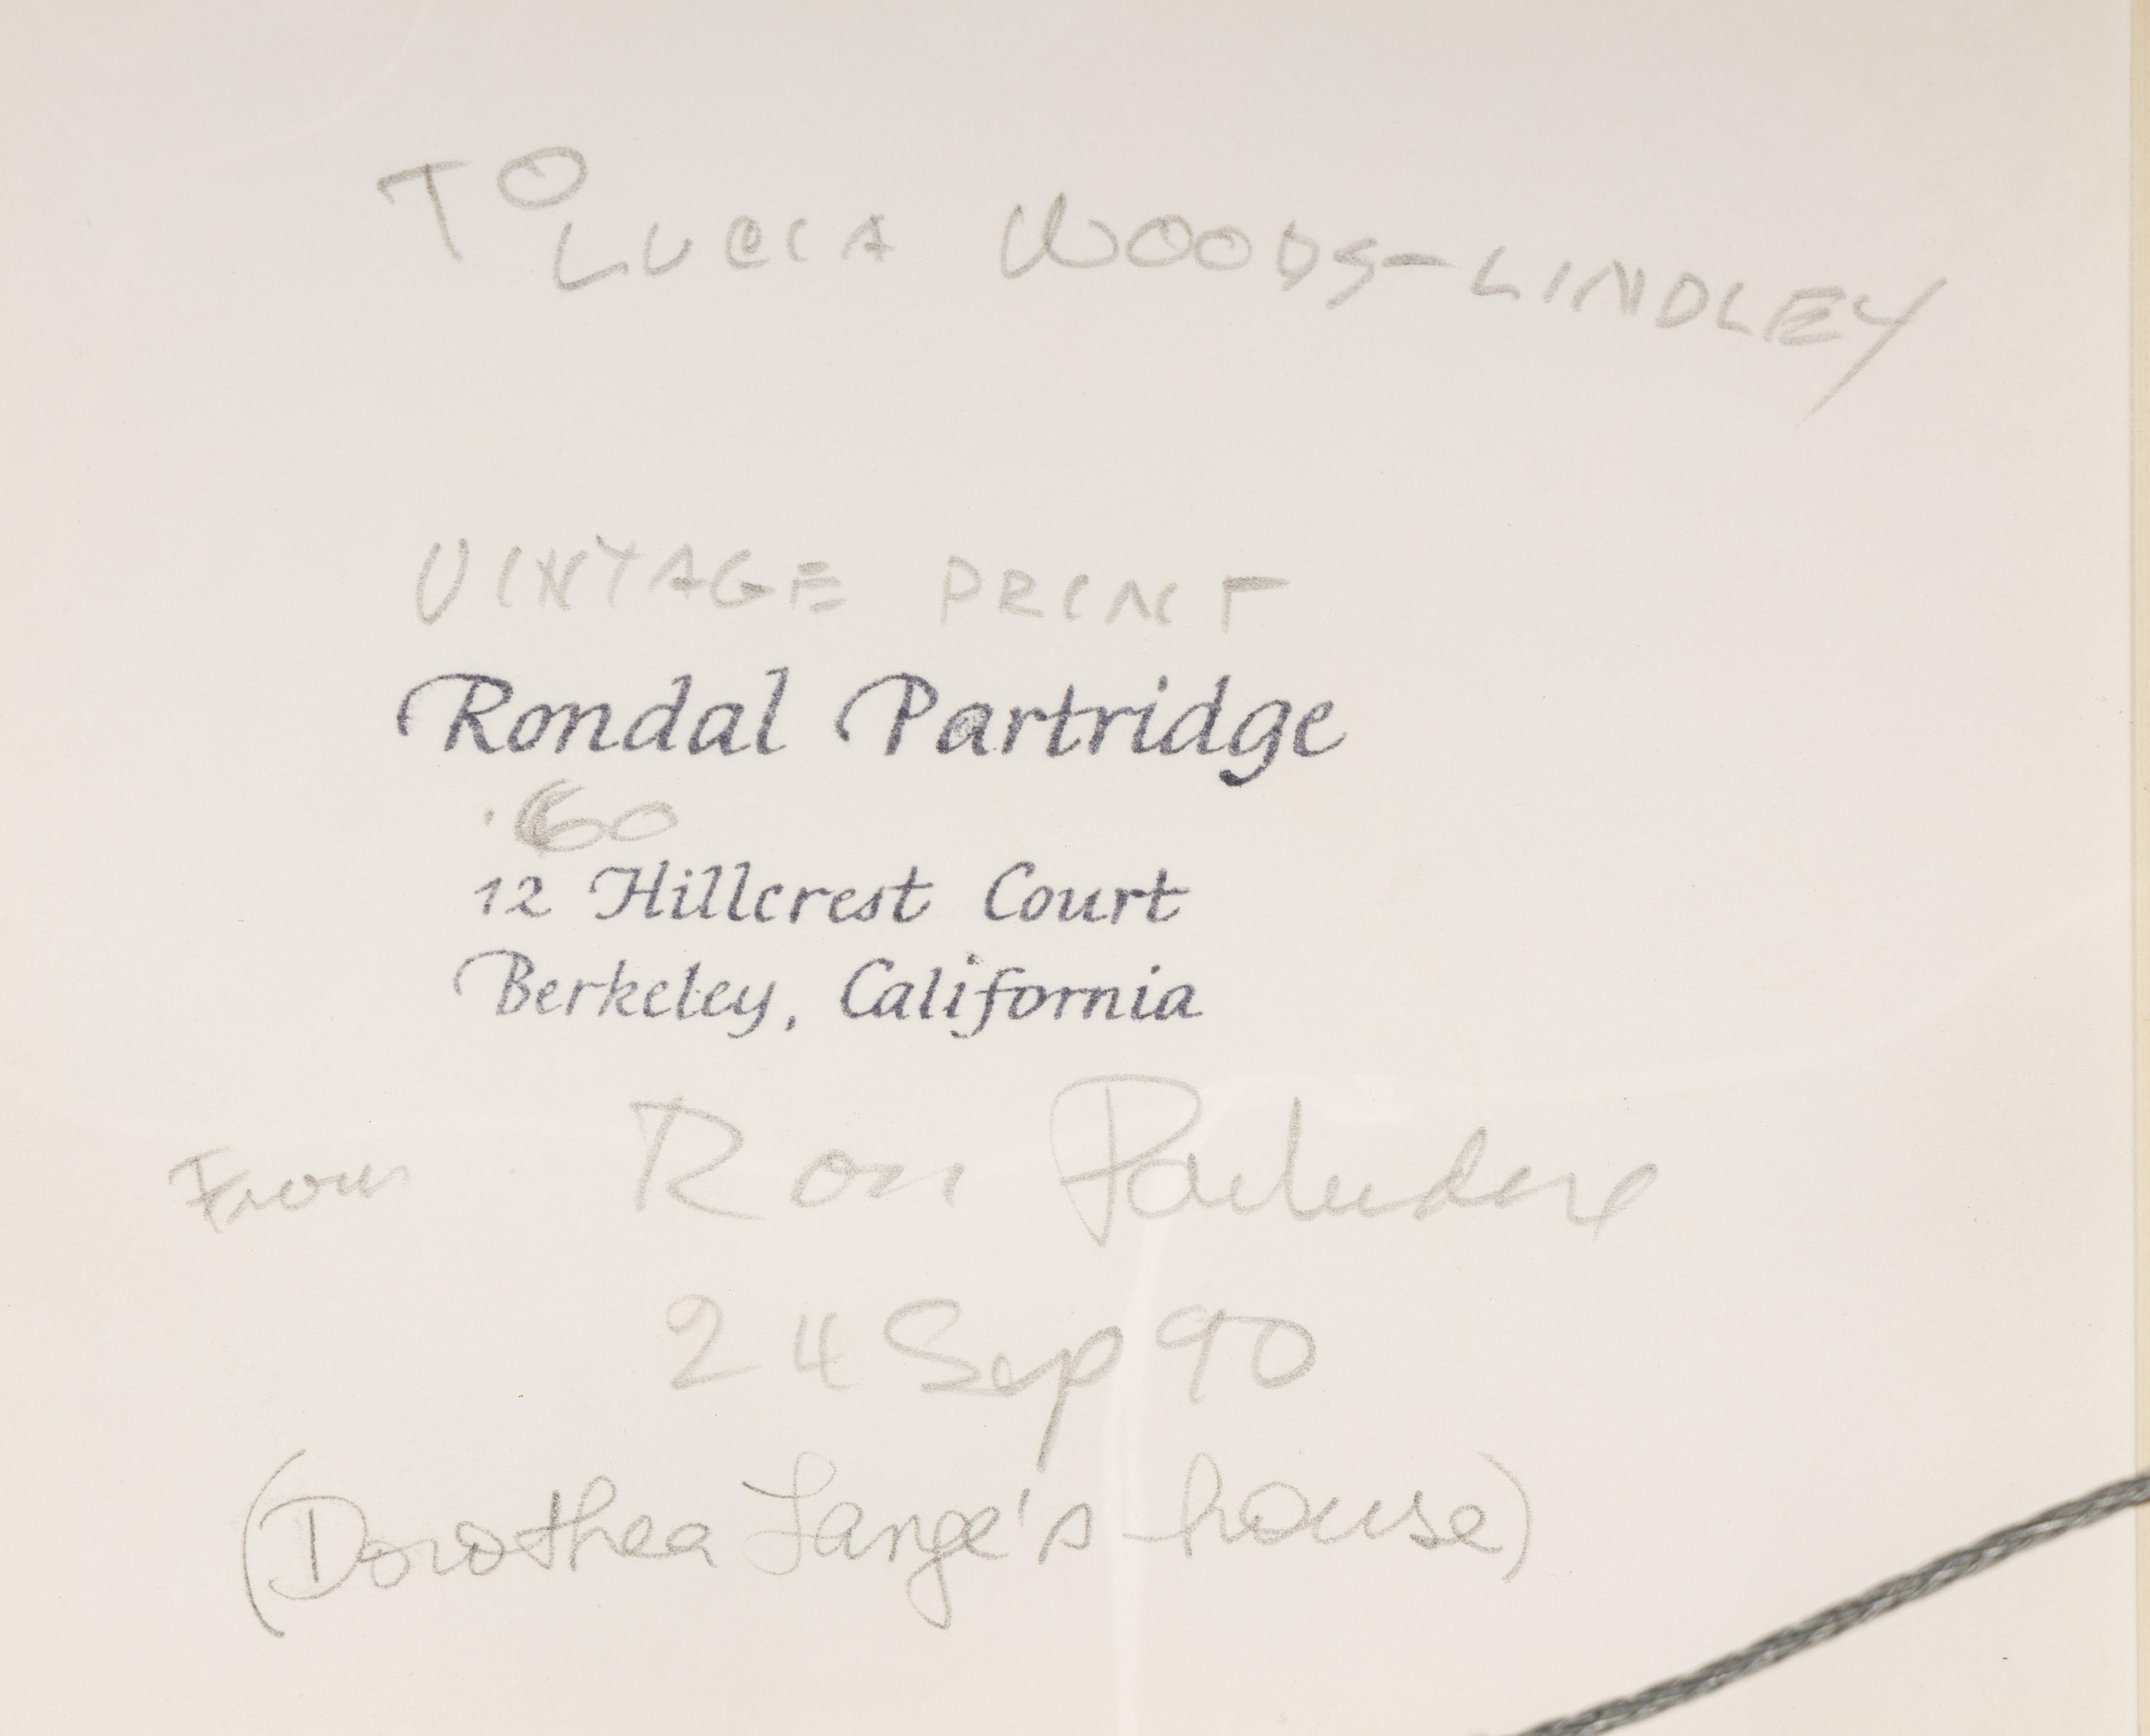 TO LUCIA WOODS-LINDLEY
VINTAGE PRINT
Rondal Partridge
'60
12 Hillcrest Court
Berkeley, California
From Ron Partridge
24 Sep 90
(Dorothea Lange's house)